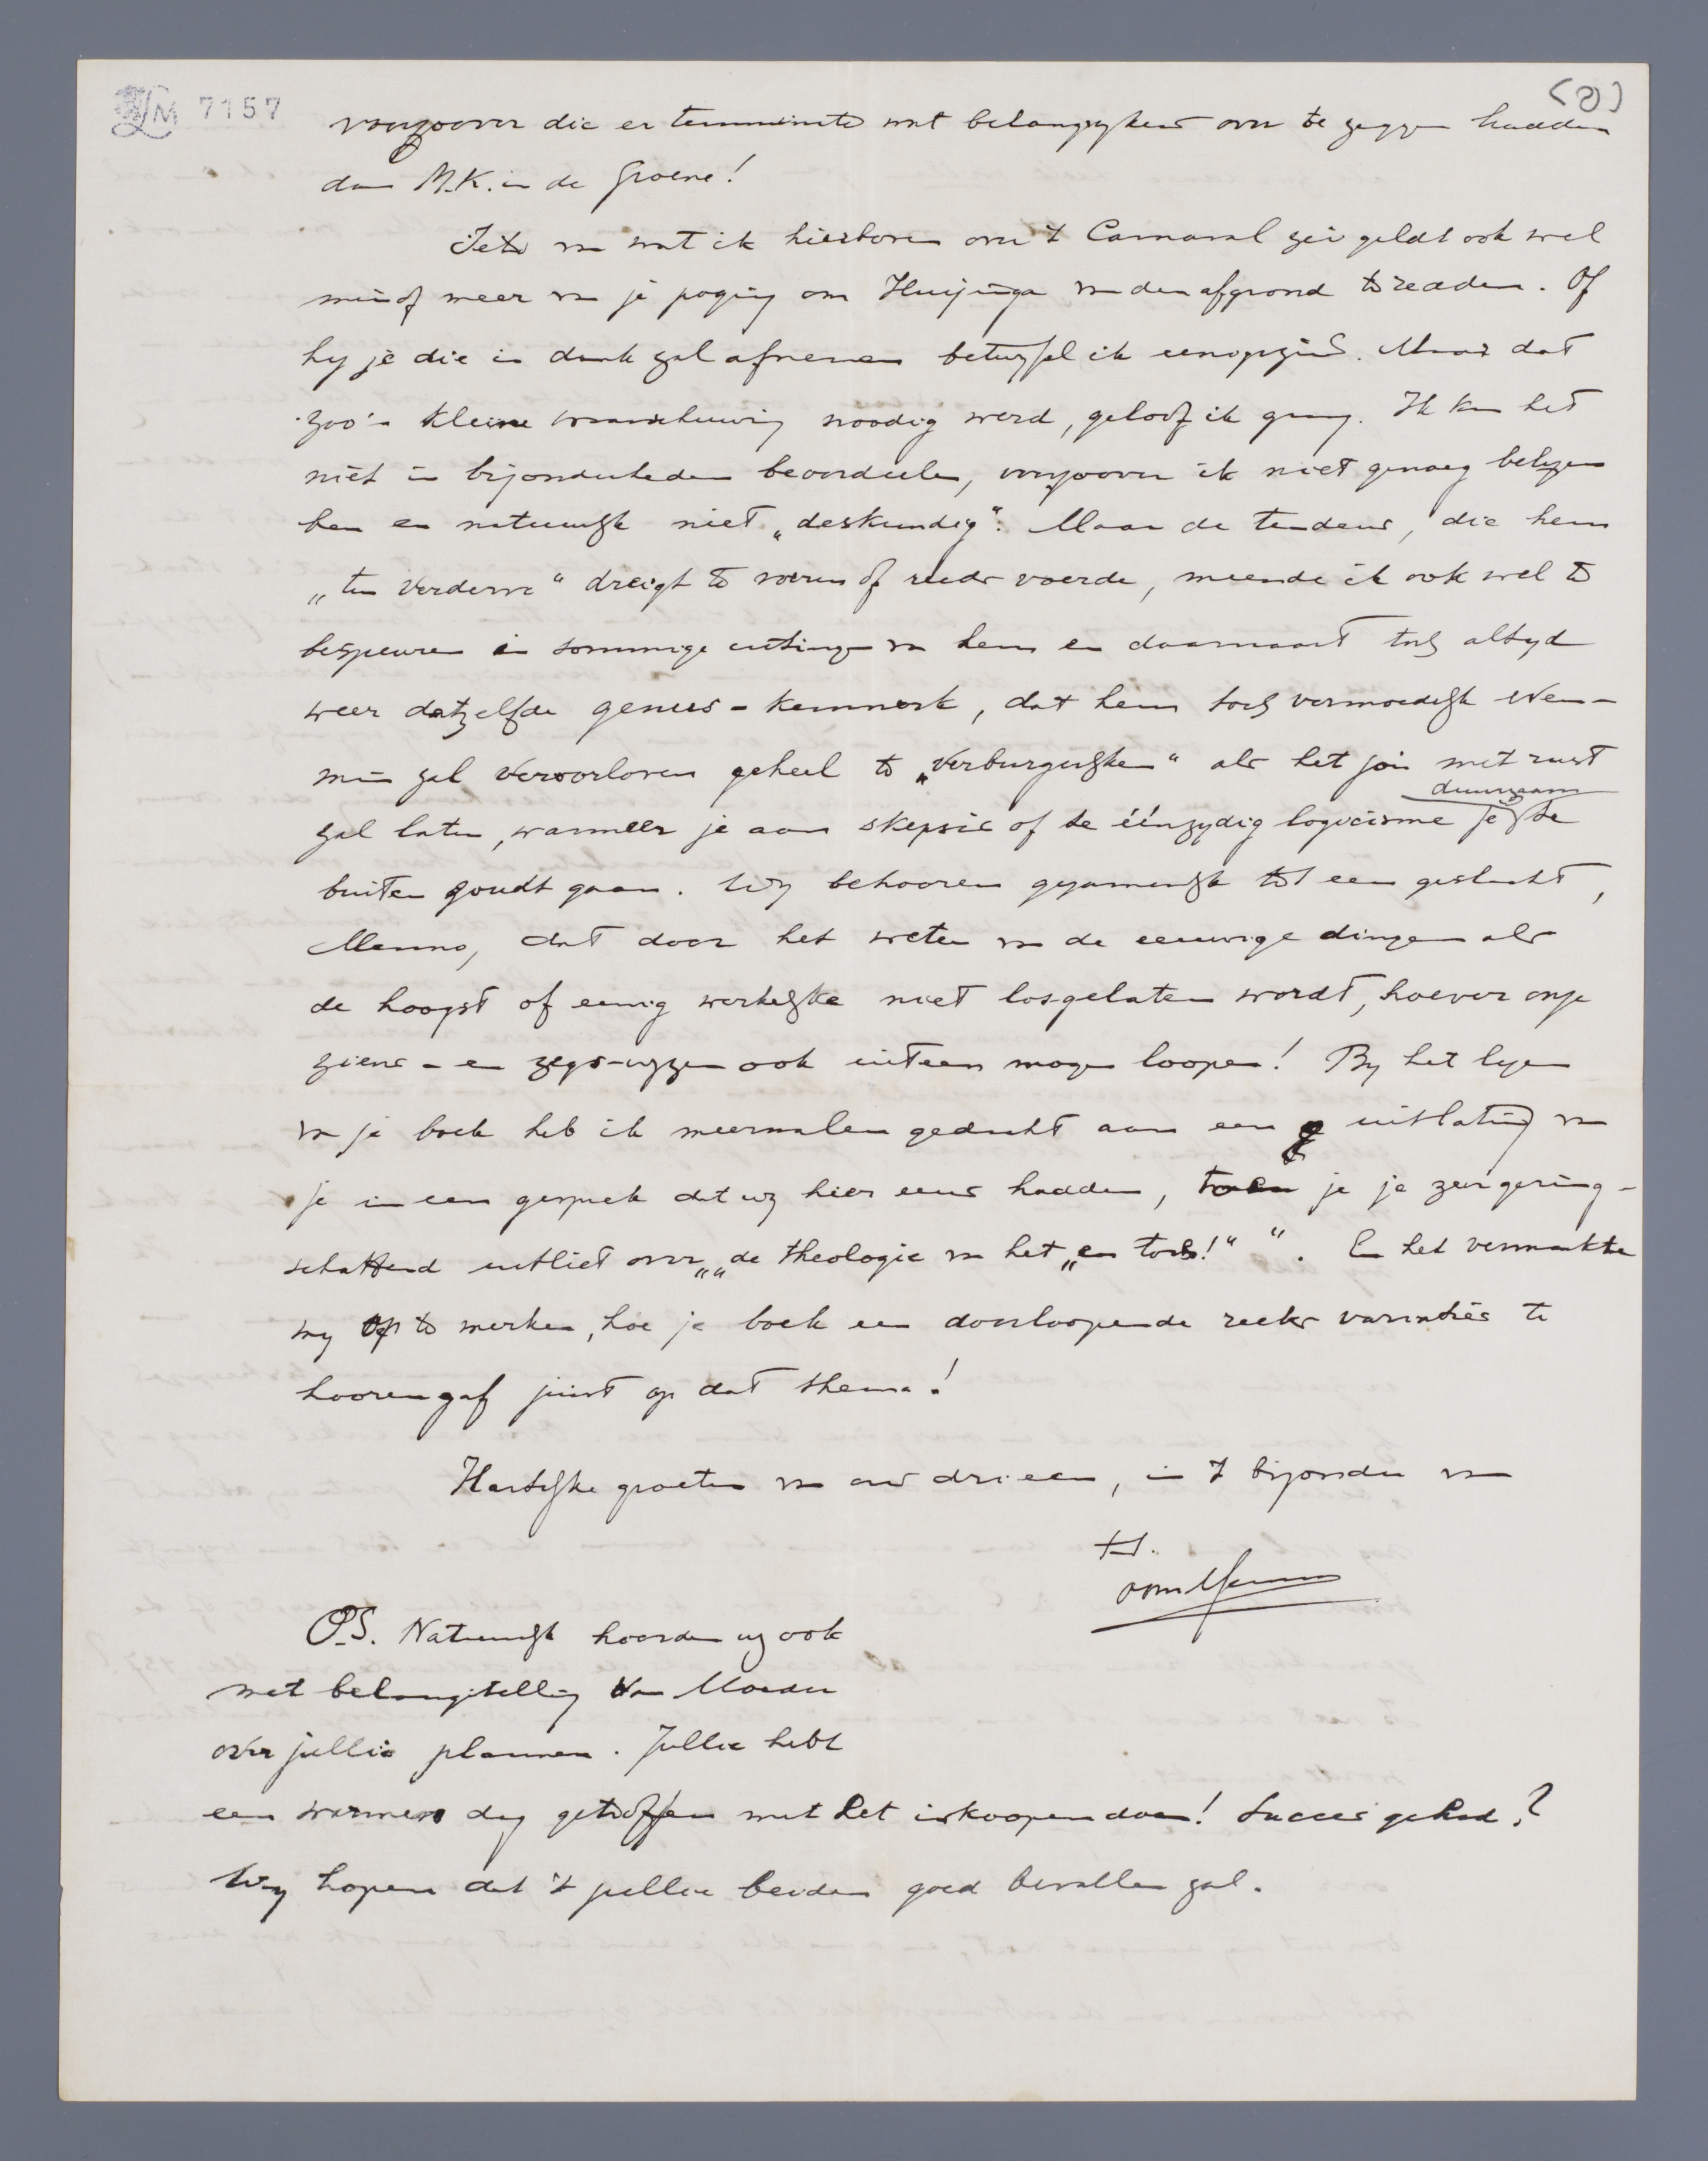 LM 7157
(2)
voorzoover die er tenminste wat belangrijkers over te zeggen hadden
dan M.K. in de Groene!
Iets van wat ik hierboven over 't Carnaval zei geldt ook wel
min of meer van je poging om Huizinga van den afgrond te redden. Of
hij je die in dank zal afnemen betwijfel ik eenigszins. Maar dat
zoo'n kleine waarschuwing noodig werd, geloof ik graag. Ik kan het
niet in bijzonderheden beoordeelen, voorzoover ik niet genoeg belezen
ben en natuurlijk niet „deskundig". Maar de tendens, die hem
„ten verderve" dreigt te voeren of reeds voerde, meende ik ook wel te
bespeuren in sommige uitingen van hem en daarnaast toch altijd
weer datzelfde genius-kenmerk, dat hem toch vermoedelijk even-
min zal veroorloven geheel te „verburgerlijken" als het jou met rust
zal laten, wanneer je aan skepsis of te éénzijdig logicisme je duurzaam te
buiten zoudt gaan. Wij behooren gezamenlijk tot een geslacht,
Menno, dat door het weten van de eeuwige dingen als
de hoogst of eenig werkelijke niet losgelaten wordt, hoever onze
ziens- en zegs-wijzen ook uiteen mogen loopen! Bij het lezen
van je boek heb ik meermalen gedacht aan een uitlating van
je in een gesprek dat wij hier eens hadden, toen je je zeer gering-
schattend uitliet over „„de theologie van het „en toch!" ". En het vermaakte
mij op te merken, hoe je boek een doorloopende reeks variaties te
hooren gaf juist op dat thema!
Hartelijke groeten van ons drieën, in 't bijzonder van
t.t.
oom Menno
P.S. Natuurlijk hoorden wij ook
met belangstelling van Moeder
over jullie plannen. Jullie hebt
een warmen dag getroffen met het inkoopen doen! Succes gehad?
Wij hopen dat 't jullie beiden goed bevallen zal.